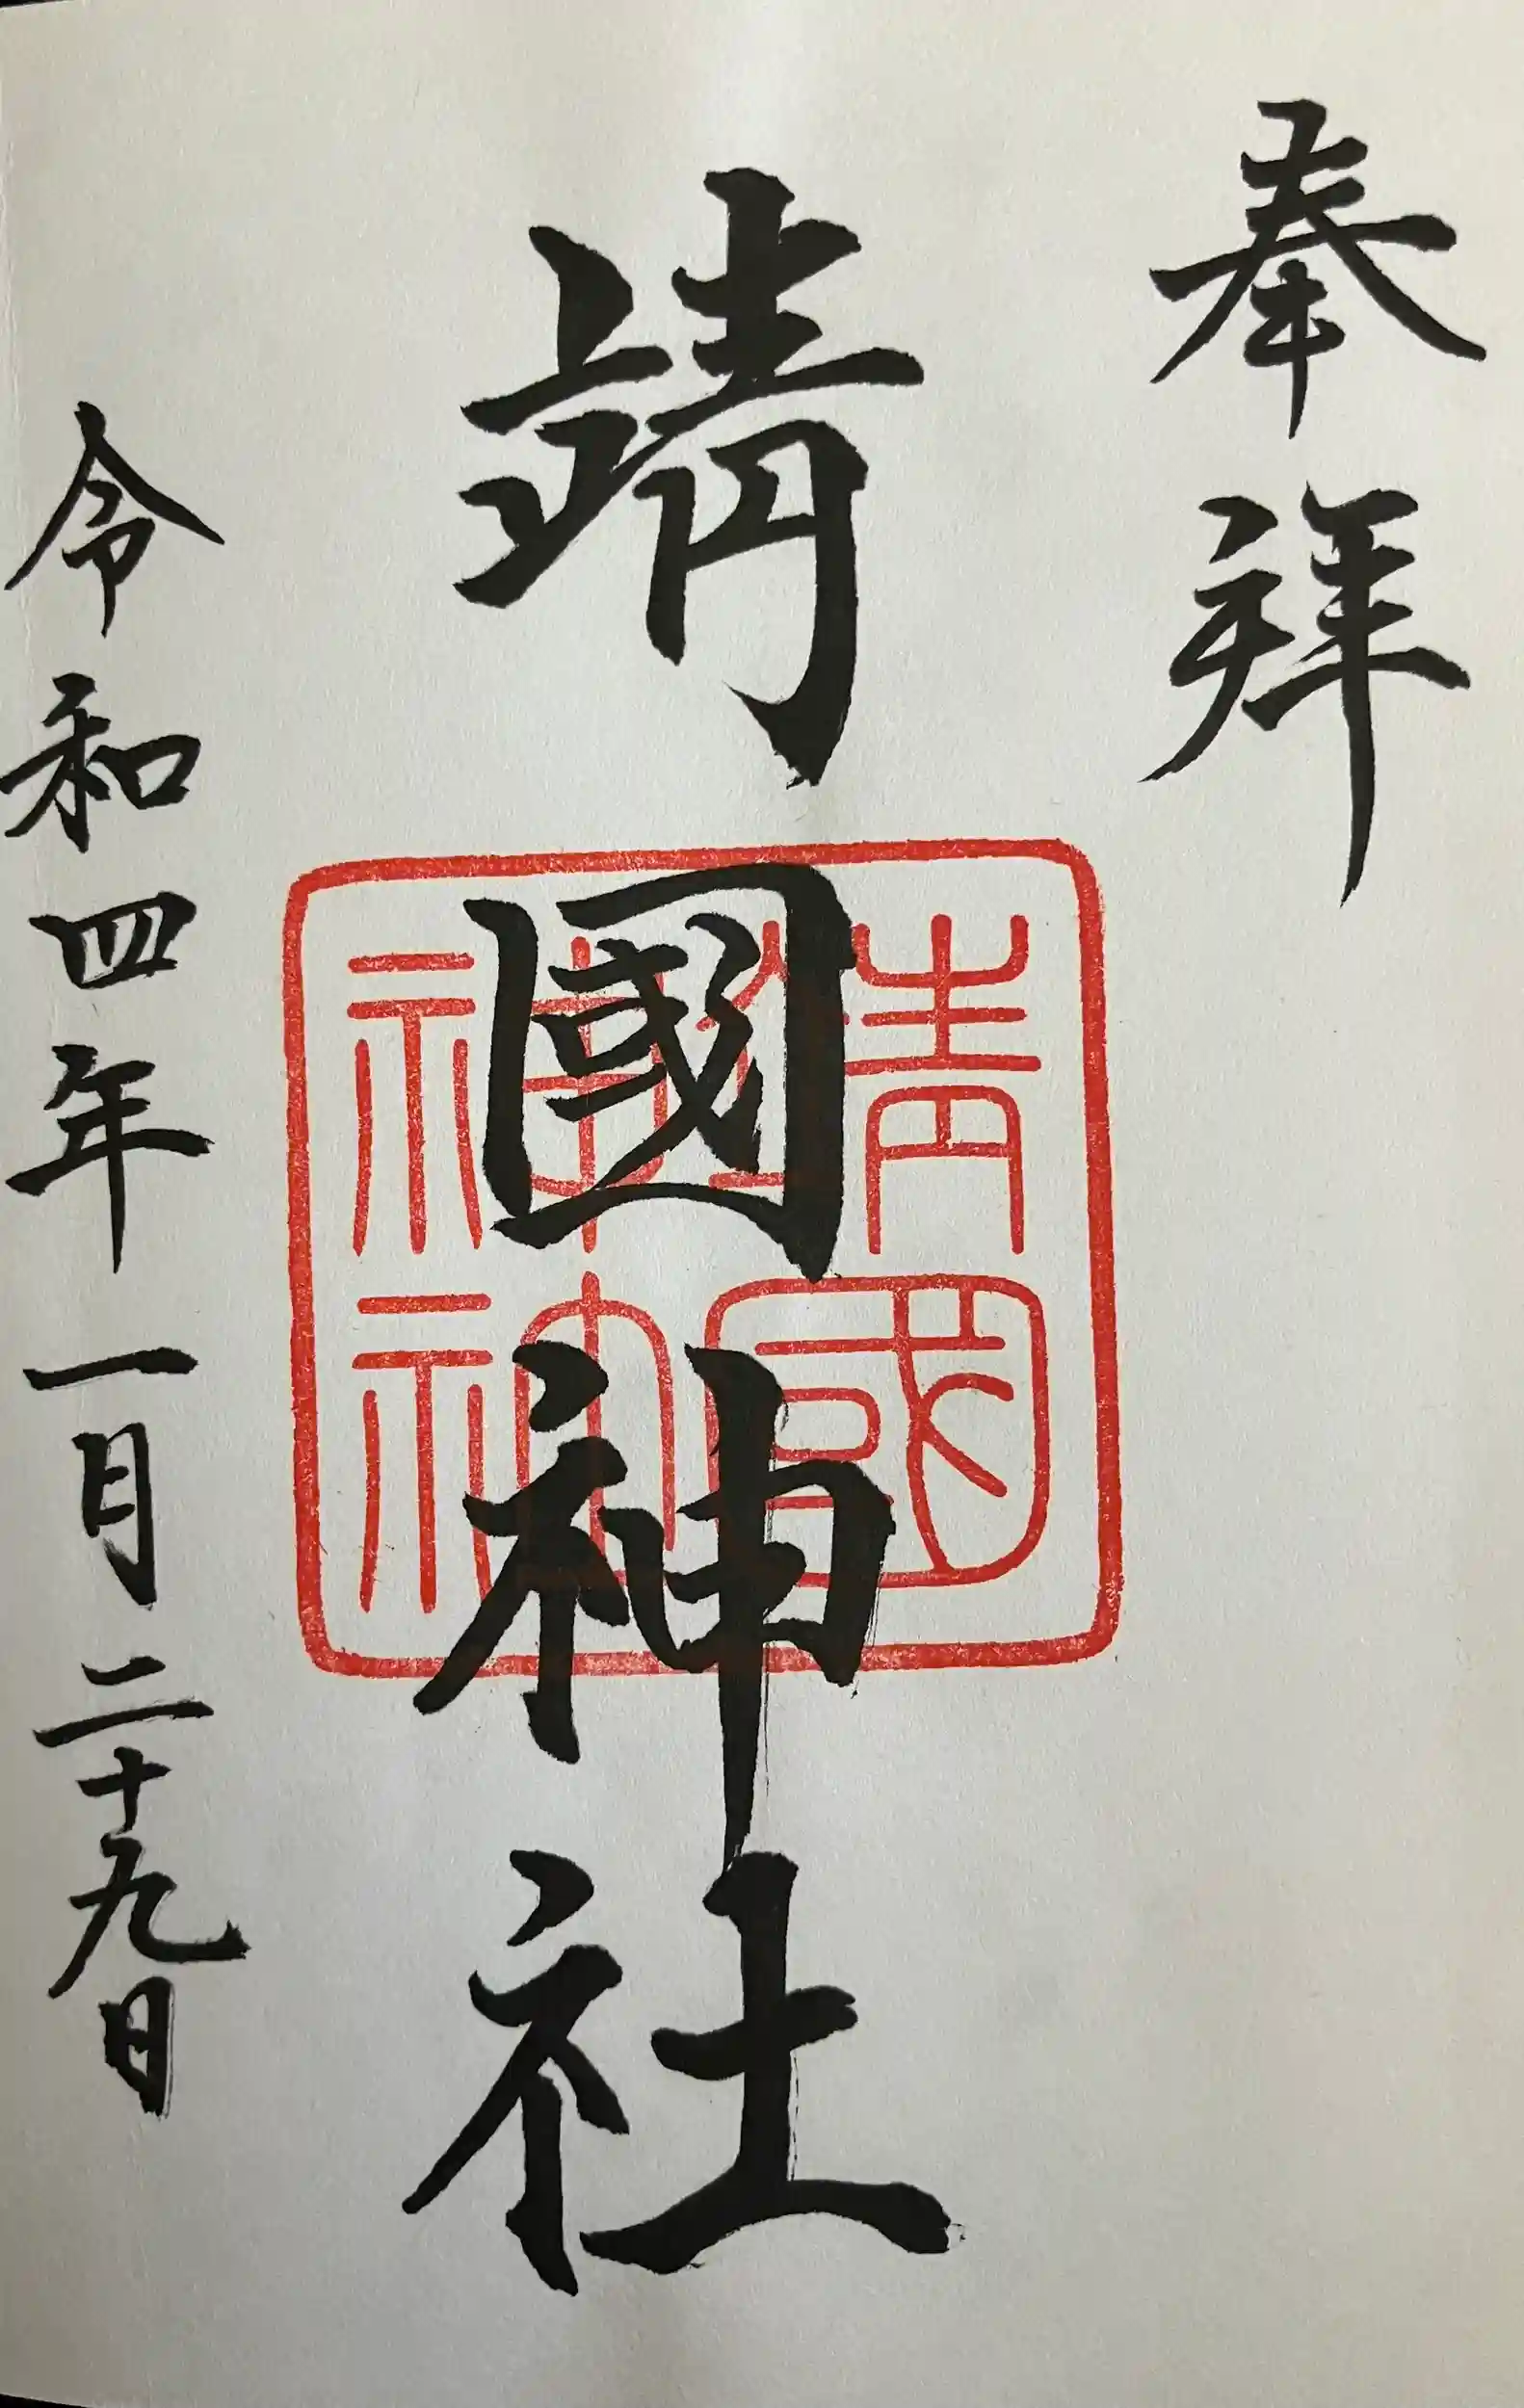 奉拝
靖國神社
靖國
神社
令和四年一月二十九日